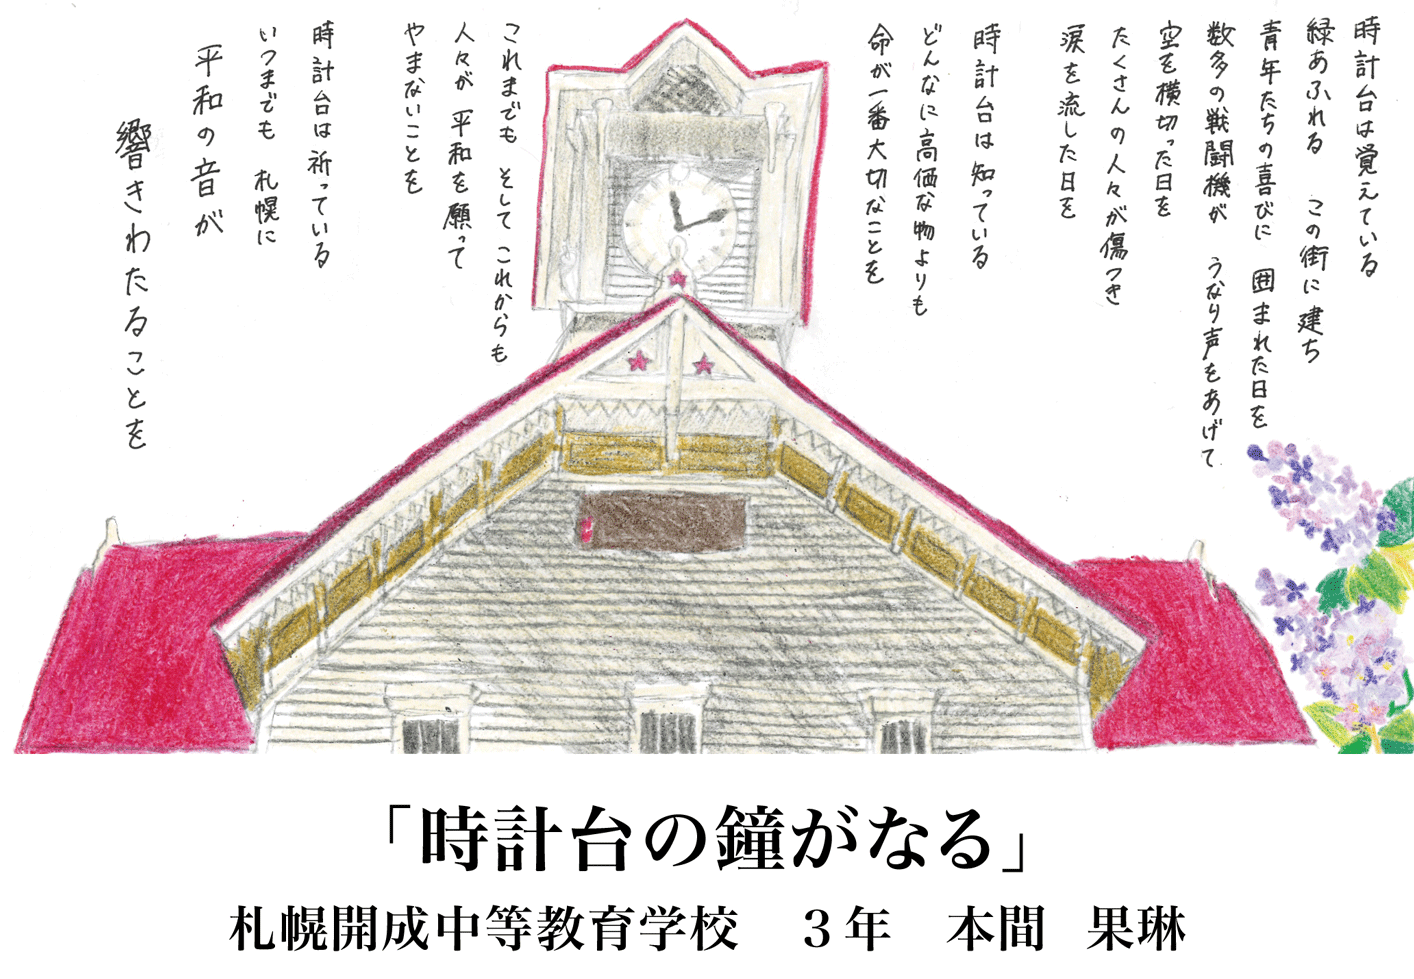 時計台は覚えている
緑あふれる　この街に建ち
青年たちの喜びに　囲まれた日を
数多の戦闘機が　うなり声をあげて
空を横切った日を
たくさんの人々が傷つき
涙を流した日を
時計台は知っている
どんなに高価な物よりも
命が一番大切なことを
これまでも　そして　これからも
人々が　平和を願って
やまないことを
時計台は祈っている
いつまでも　札幌に
平和の音が
響きわたることを
「時計台の鐘がなる」
札幌開成中等教育学校　３年　本間　果琳